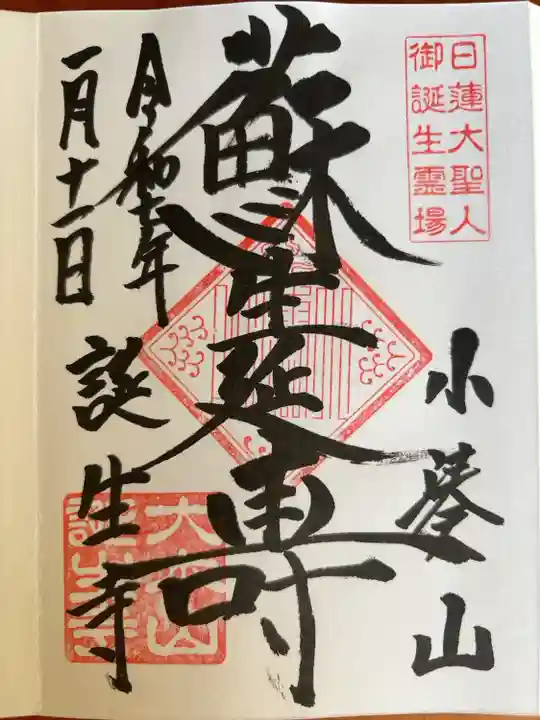 日蓮大聖人
御誕生霊場
小湊山
蘇生延寿
令和七年
一月十一日
誕生寺